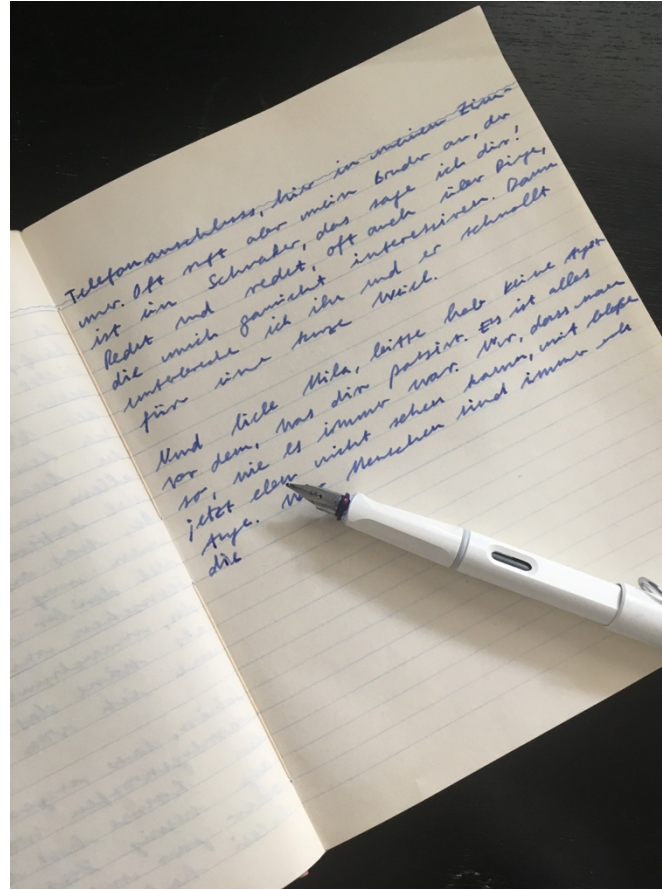 Telefonanschluss, hier in meinem Zim-
mer. Oft ruft aber mein Bruder an, der
ist ein Schnaker, das sage ich dir!
Redet und redet, oft auch über Dinge,
die mich garnicht interessiren. Dann
unterbreche ich ihn und er schmollt
für eine kurze Weile.
Und liebe Mila, bitte hab keine Angst
vor dem, was dir passirt. Es ist alles
so, wie es immer war. Nur, dass man
jetzt eben nicht sehen kann, mit bloße
Auge. Wir Menschen sind immer noch
die